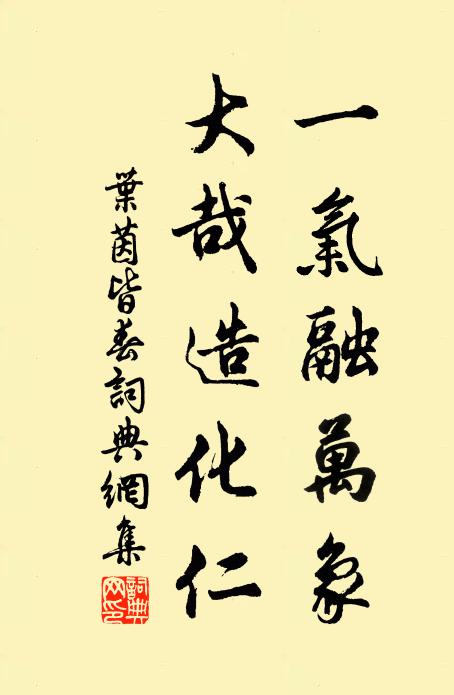 一氣融萬象
大哉造化仁
葉茵皆春詞典網集
詞典
网印